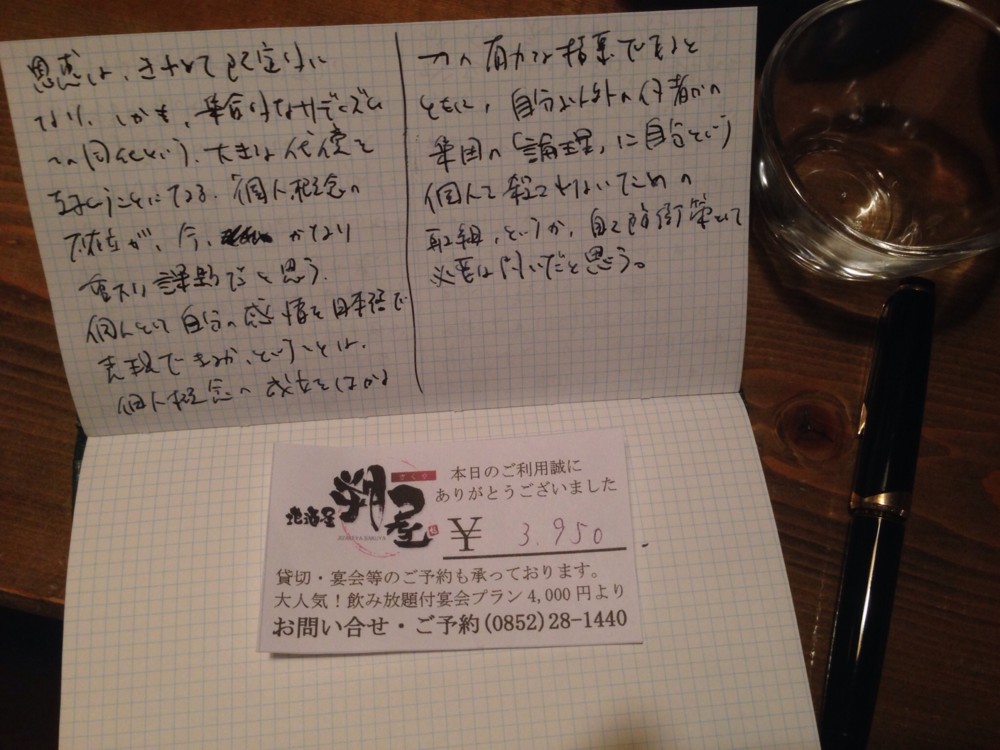 思惑は、きわめて限定的に
なり、しかも、集合的なサディズム
への同化という、大きな代償を
払うことになる。個人概念の
が、今、かなり
重大な課題だと思う。
個人として自分の感情を日本語で
表現できるか、ということは、
個人概念の成立をはかる
一つの有力な指標であると
ともに、自分以外の何者かの
集団の「論理」に自分という
個人を殺されないための
取組、というか、自己防衛策として
必要な問いだと思う。
さくや
地酒屋
朔屋
JIZAKEYA SAKUYA
本日のご利用誠に
ありがとうございました
¥ 3.950
貸切・宴会等のご予約も承っております。
大人気！飲み放題付宴会プラン4,000円より
お問い合せ・ご予約(0852)28-1440